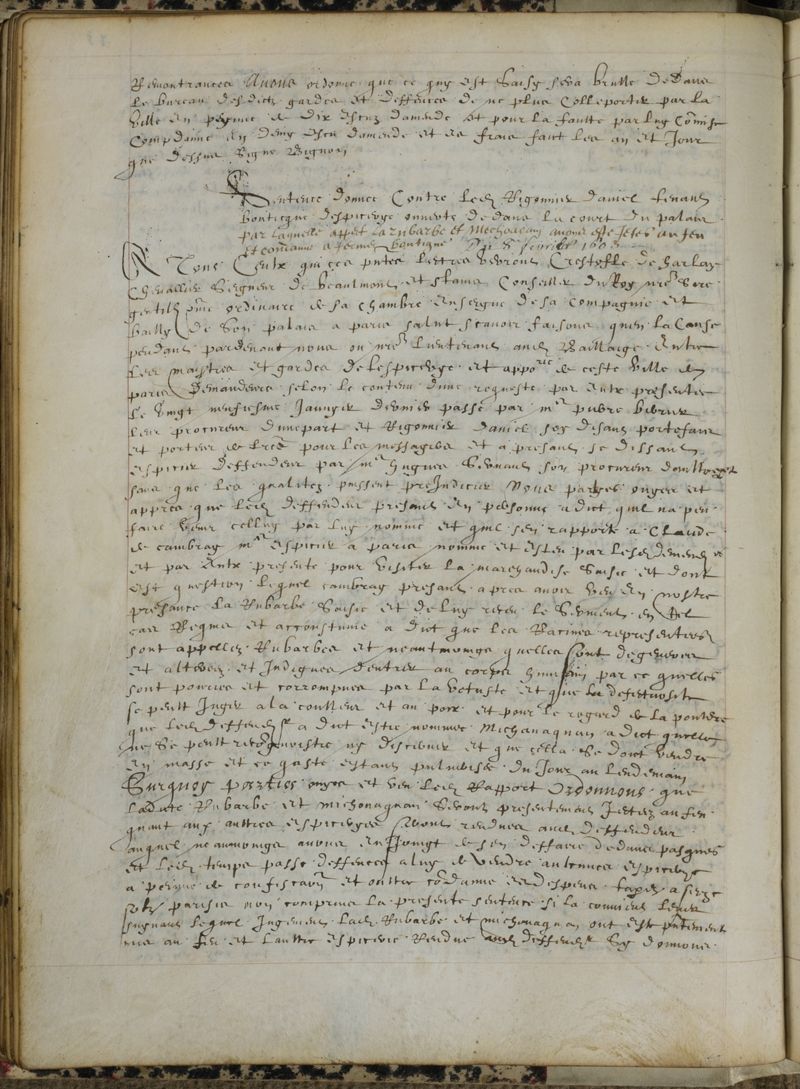 Remontrances Avons ordonné que ce qui est saisy sera bruslé dedans
le bureau desdictz gardes et deffences de ne plus colleporter par la
ville en peyne de dix escuz damende et pour la faulte par luy commise
Compdamné en demy escu damende et es frais faict les an et jour
que dessus Signé Bignon
Sentence donnee Contre ledict Rigommier daniel tenant
bouticque despicerye ouverte dedans la court du palais
par laquelle appert la rubarbe et Mechoacan avoir esté jetés au feu
et condamné a fermer boutique Du 8 fevrier 1603
A Tous Ceulx qui ces presentes lettres verront Cristofle de harlay
Chevallier Seigneur de beaulmont et stains Conseiller du Roy nostre sire
gentilhomme ordinaire de sa chambre enseigne de sa compagnie et
bailly de son palais a paris salut scavoir faisons quen la Cause
pendant pardevant nous ou nostre lieutenant audict Bailliage Entre
les maistres et gardes de lespicerye et appoticairerie de ceste ville de
paris Demandeurs selon le contenu dune requeste par eulx presentee
le vingt neufiesme Janvyer dernier passé par Me pierre
leur procureur dunepart et Rigommier daniel soy disant portefaix
et porteur de pour les messagers et a present se dissant
espicier deffendeur par Me hugues son procureur daultrepart
sans que les qualitez puissent prejudicier Nous parties ouyes et
appres que ledict deffendeur present en personne a dict quil na peu
faire venir celluy par luy nommé et quil sen rapporte a Claude
de cambray Me espicier a paris nommé et esleu par lesdictz demandeurs
et par eulx presenté pour visiter la marchandise saisie et dont
est question lequel cambray present apres avoir veu en nostre
presence la Rubarbe saisie et de luy receu le serment en tel
cas Requis et accoustumé a dict que les Racines representees
sont appellez Rubarbes et neantmoings quelles sont degenerees
et alterees et Indignes dentrer au corps humain par ce quelles
sont pourries et corrompues par la vetusté et que la defectuosité
se peult Juger a la coulleur et au poix et pour le regard de la pouldre
que ledict deffendeur a dict estre nommee Michanaquan a dict quelle
ne se peult recognoistre ny discerner et que cella se doibt vendre
en masse et ce gaste estant pulverisé du jour au lendemain
Surquoy parties ouyes et veu ledict Rapport Ordonnons que
ladicte Rubarbe et michonaquan seront presentement jettez au feu
quant aux aultres espiceryes seront rendues audict deffendeur
auquel neantmoings avons enjoinct de sen deffaire dedans pasques
et ledict temps passé deffences a luy de vendre aulcunes espiceryes
a peyne de confiscation et oultre condamné es despens taxez a seize
solz parisis non comprins la presente sentence si la convient lever
suyvant lequel Jugement ladicte Rubarbe et michonaquan ont esté presentement
mis au feu et laultre espicerie Rendue audict deffendeur Sy donnons